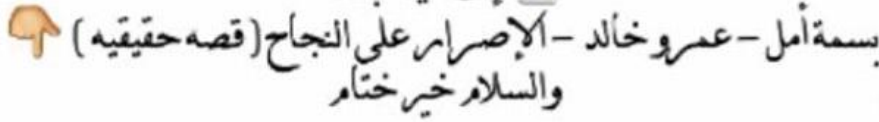 بسمة أمل - عمرو خالد - الإصرار على النجاح (قصه حقيقيه) 👇
والسلام خير ختام